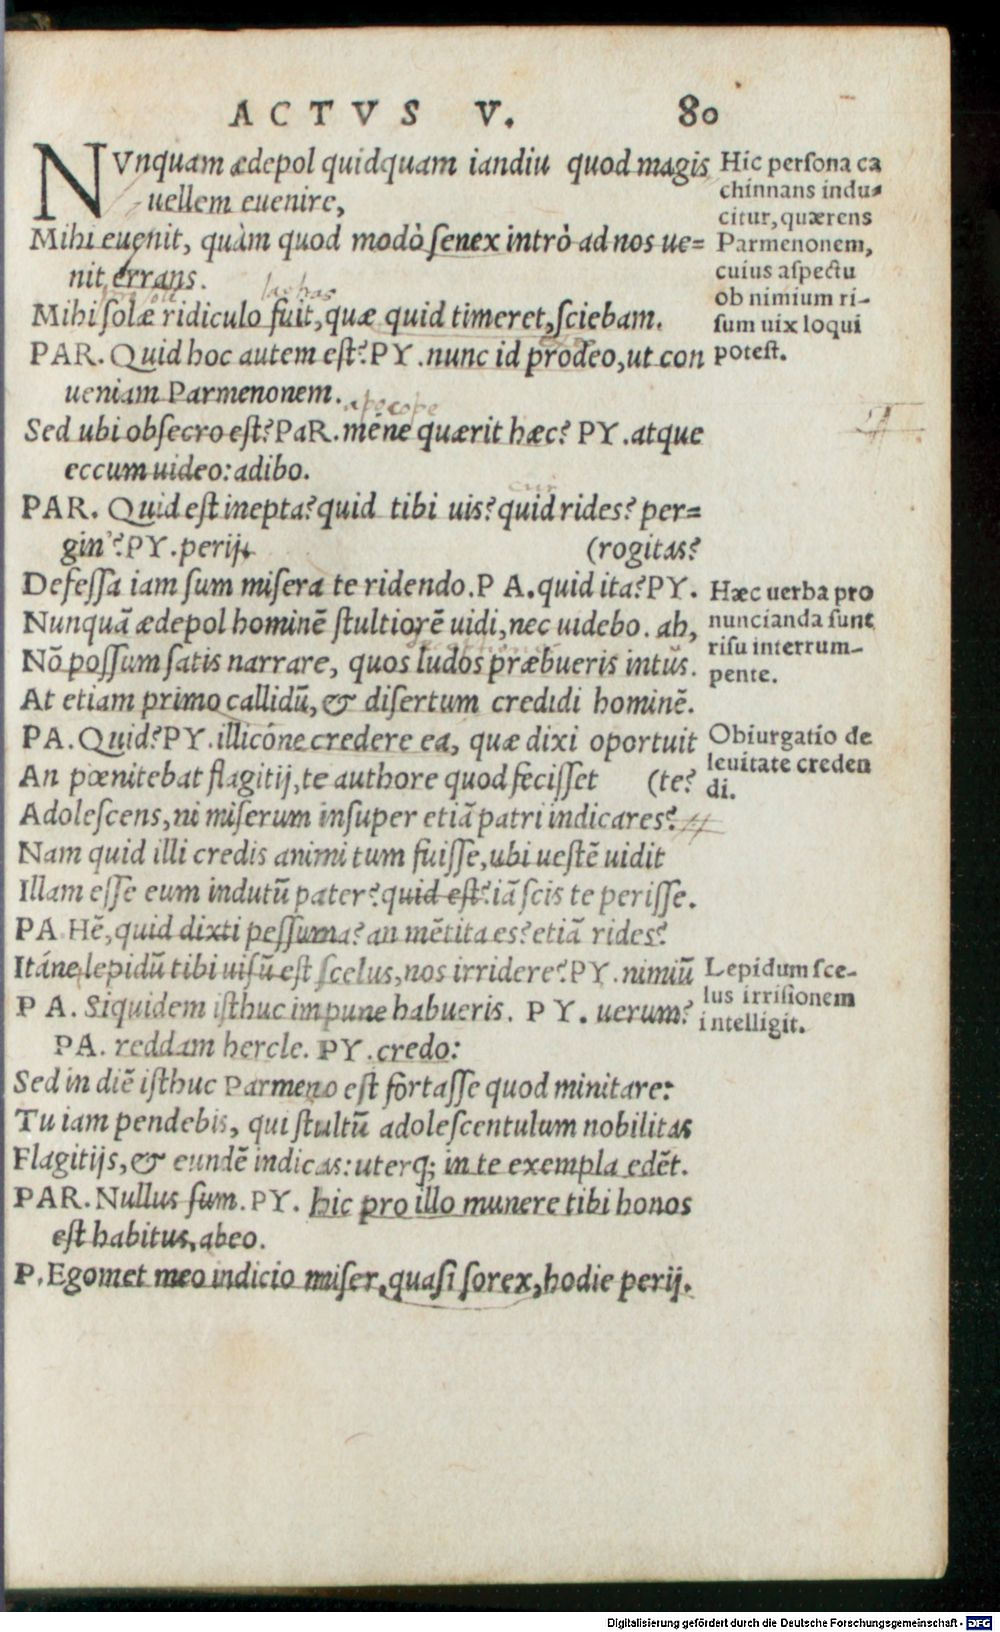 ACTVS V. 80
NVnquam ædepol quidquam iandiu quod magis
uellem euenire,
Mihi euenit, quàm quod modò senex intrò ad nos ue=
nit errans.
lachas
Mihi solæ ridiculo fuit, quæ quid timeret, sciebam.
PAR. Quid hoc autem est? PY. nunc id prodeo, ut con
ueniam Parmenonem.
apocope
Sed ubi obsecro est? PaR. méne quærit hæc? PY. atque
eccum uideo: adibo.
cur
PAR. Quid est inepta? quid tibi uis? quid rides? per=
gin'? PY. perij. (rogitas?
Defessa iam sum misera te ridendo. P A. quid ita? PY.
Nunquā ædepol hominē stultiorē uidi, nec uidebo. ah,
Nō possum satis narrare, quos ludos præbueris intus.
At etiam primo callidū, & disertum credidi hominē.
PA. Quid? PY. illicóne credere ea, quæ dixi oportuit
An pœnitebat flagitij, te authore quod fecisset (te?
Adolescens, ni miserum insuper etiā patri indicares?
Nam quid illi credis animi tum fuisse, ubi uestē uidit
Illam esse eum indutū pater? quid est? iā scis te perisse.
PA Hē, quid dixti pessuma? an mētita es? etiā rides?
Itáne lepidū tibi uisū est scelus, nos irridere? PY. nimiū
P A. Siquidem isthuc impune habueris. P Y. uerum?
PA. reddam hercle. PY. credo:
Sed in diē isthuc Parmeno est fortasse quod minitare:
Tu iam pendebis, qui stultū adolescentulum nobilitas
Flagitijs, & eundē indicas: uterq; in te exempla edēt.
PAR. Nullus sum. PY. hic pro illo munere tibi honos
est habitus, abeo.
P. Egomet meo indicio miser, quasi sorex, hodie perij.
Hic persona ca
chinnans indu=
citur, quærens
Parmenonem,
cuius aspectu
ob nimium ri-
sum uix loqui
potest.
Hæc uerba pro
nuncianda sunt
risu interrum-
pente.
Obiurgatio de
leuitate creden
di.
Lepidum sce-
lus irrisionem
intelligit.
Digitalisierung gefördert durch die Deutsche Forschungsgemeinschaft - DFG